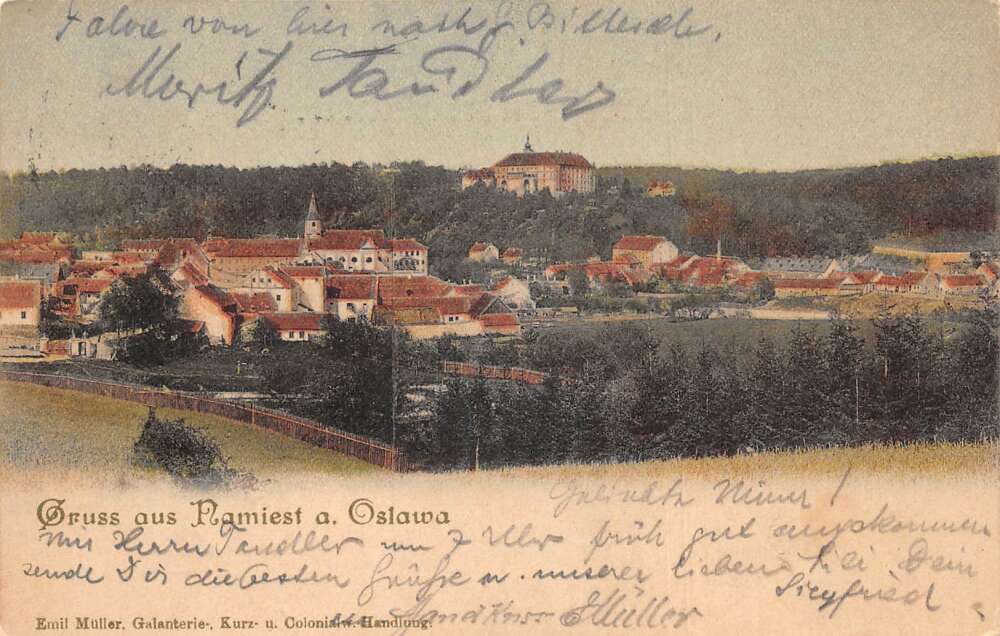 Fahre von hier nach
Moritz Tandler
Geliebte Mimi!
Gruss aus Namiest a. Oslawa
Mit Herrn Tandler um 7 Uhr früh gut angekommen
sende Dir die besten Grüße u. unserer lieben Dein
Siegfried
Handkuss EMüller
Emil Müller, Galanterie-, Kurz- u. Colonialw.-Handlung.